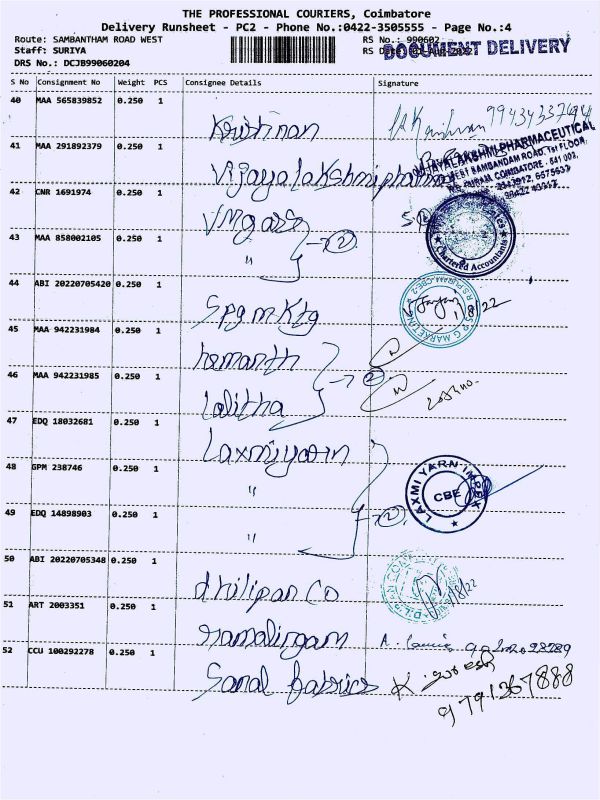 THE PROFESSIONAL COURIERS, Coimbatore
Delivery Runsheet - PC2 - Phone No.:0422-3505555 - Page No.:4
Route: SAMBANTHAM ROAD WEST RS No.: 990602
Staff: SURIYA RS Date:
DOCUMENT DELIVERY
DRS No.: DCJB99060204
S No Consignment No Weight PCS Consignee Details Signature
40 MAA 565839852 0.250 1
Krishnan
41 MAA 291892379 0.250 1
Vijayalakshmi pharma
VIJAYALAKSHMI PHARMACEUTICAL
WEST SAMBANDAM ROAD, 1st FLOOR,
R.S. PURAM, COIMBATORE - 641 002.
42 CNR 1691974 0.250 1
VMg
43 MAA 858002105 0.250 1
" 2
Chartered Accountants
44 ABI 20220705420 0.250 1
Spg mktg
R.S.PURAM, CBE-2
S P G MARKETING
1/8/22
45 MAA 942231984 0.250 1
hemanth
46 MAA 942231985 0.250 1
2
Lalitha
47 EDQ 18032681 0.250 1
Laxmiyarn
48 GPM 238746 0.250 1
"
LAXMI YARN IMPEX
CBE
49 EDQ 14898903 0.250 1
2
"
50 ABI 20220705348 0.250 1
dhilipan Co
1/8/22
51 ART 2003351 0.250 1
Ramalingam
52 CCU 100292278 0.250 1
Sonal fabrics
9791367888